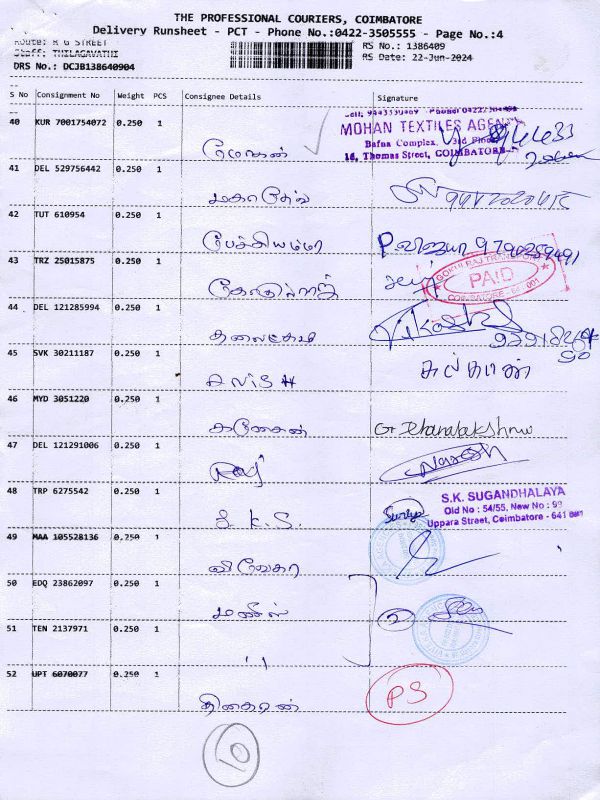 THE PROFESSIONAL COURIERS, COIMBATORE
Delivery Runsheet - PCT - Phone No.:0422-3505555 - Page No.:4
Route: R G STREET
RS No.: 1386409
Staff: THILAGAVATHI
RS Date: 22-Jun-2024
DRS No.: DCJB138640904
S No Consignment No Weight PCS Consignee Details Signature
40 KUR 7001754072 0.250 1
MOHAN TEXTILES AGENCY
Bafna Complex, 3rd Floor
16, Thomas Street, COIMBATORE-1
மோகன்
41 DEL 529756442 0.250 1
மகாதேவ்
42 TUT 610954 0.250 1
பேச்சியம்மா
43 TRZ 25015875 0.250 1
GOKULRAJ TRANSPORT
PAID
COIMBATORE - 641 001
கோகுல்ராஜ்
44 DEL 121285994 0.250 1
45 SVK 30211187 0.250 1
46 MYD 3051220 0.250 1
கணேசன்
G Dhanalakshmi
47 DEL 121291006 0.250 1
Raj
Naresh
48 TRP 6275542 0.250 1
S.K. SUGANDHALAYA
Old No : 54/55, New No : 99
Uppara Street, Coimbatore - 641 001
Surya
S.K.S.
49 MAA 105528136 0.250 1
விவேகா
50 EDQ 23862097 0.250 1
மணிஸ்
2
51 TEN 2137971 0.250 1
"
52 UPT 6070077 0.250 1
PS
தினகரன்
10